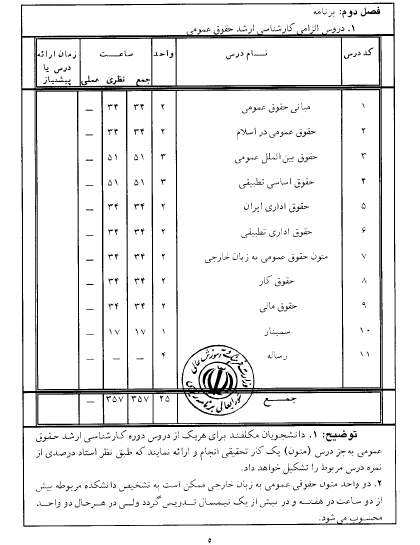 فصل دوم: برنامه
۱. دروس الزامی کارشناسی ارشد حقوق عمومی
کد درس نام درس واحد ساعت زمان ارائه درس یا پیشنیاز
جمع نظری عملی
۱ مبانی حقوق عمومی ۲ ۳۴ ۳۴ —
۲ حقوق عمومی در اسلام ۲ ۳۴ ۳۴ —
۳ حقوق بین‌الملل عمومی ۳ ۵۱ ۵۱ —
۴ حقوق اساسی تطبیقی ۳ ۵۱ ۵۱ —
۵ حقوق اداری ایران ۲ ۳۴ ۳۴ —
۶ حقوق اداری تطبیقی ۲ ۳۴ ۳۴ —
۷ متون حقوق عمومی به زبان خارجی ۲ ۳۴ ۳۴ —
۸ حقوق کار ۲ ۳۴ ۳۴ —
۹ حقوق مالی ۲ ۳۴ ۳۴ —
۱۰ سمینار ۱ ۱۷ ۱۷ —
۱۱ رساله ۴ — — —
جمع ۲۵ ۳۵۷ ۳۵۷ —
توضیح: ۱. دانشجویان مکلفند برای هریک از دروس دوره کارشناسی ارشد حقوق
عمومی به‌جز درس (متون) یک کار تحقیقی انجام و ارائه نمایند که طبق نظر استاد درصدی از
نمره درس مربوط را تشکیل خواهد داد.
۲. دو واحد متون حقوقی عمومی به زبان خارجی ممکن است به تشخیص دانشکده مربوطه بیش
از دو ساعت در هفته و در بیش از یک نیمسال تدریس گردد ولی در هرحال دو واحد
محسوب می‌شود.
۵